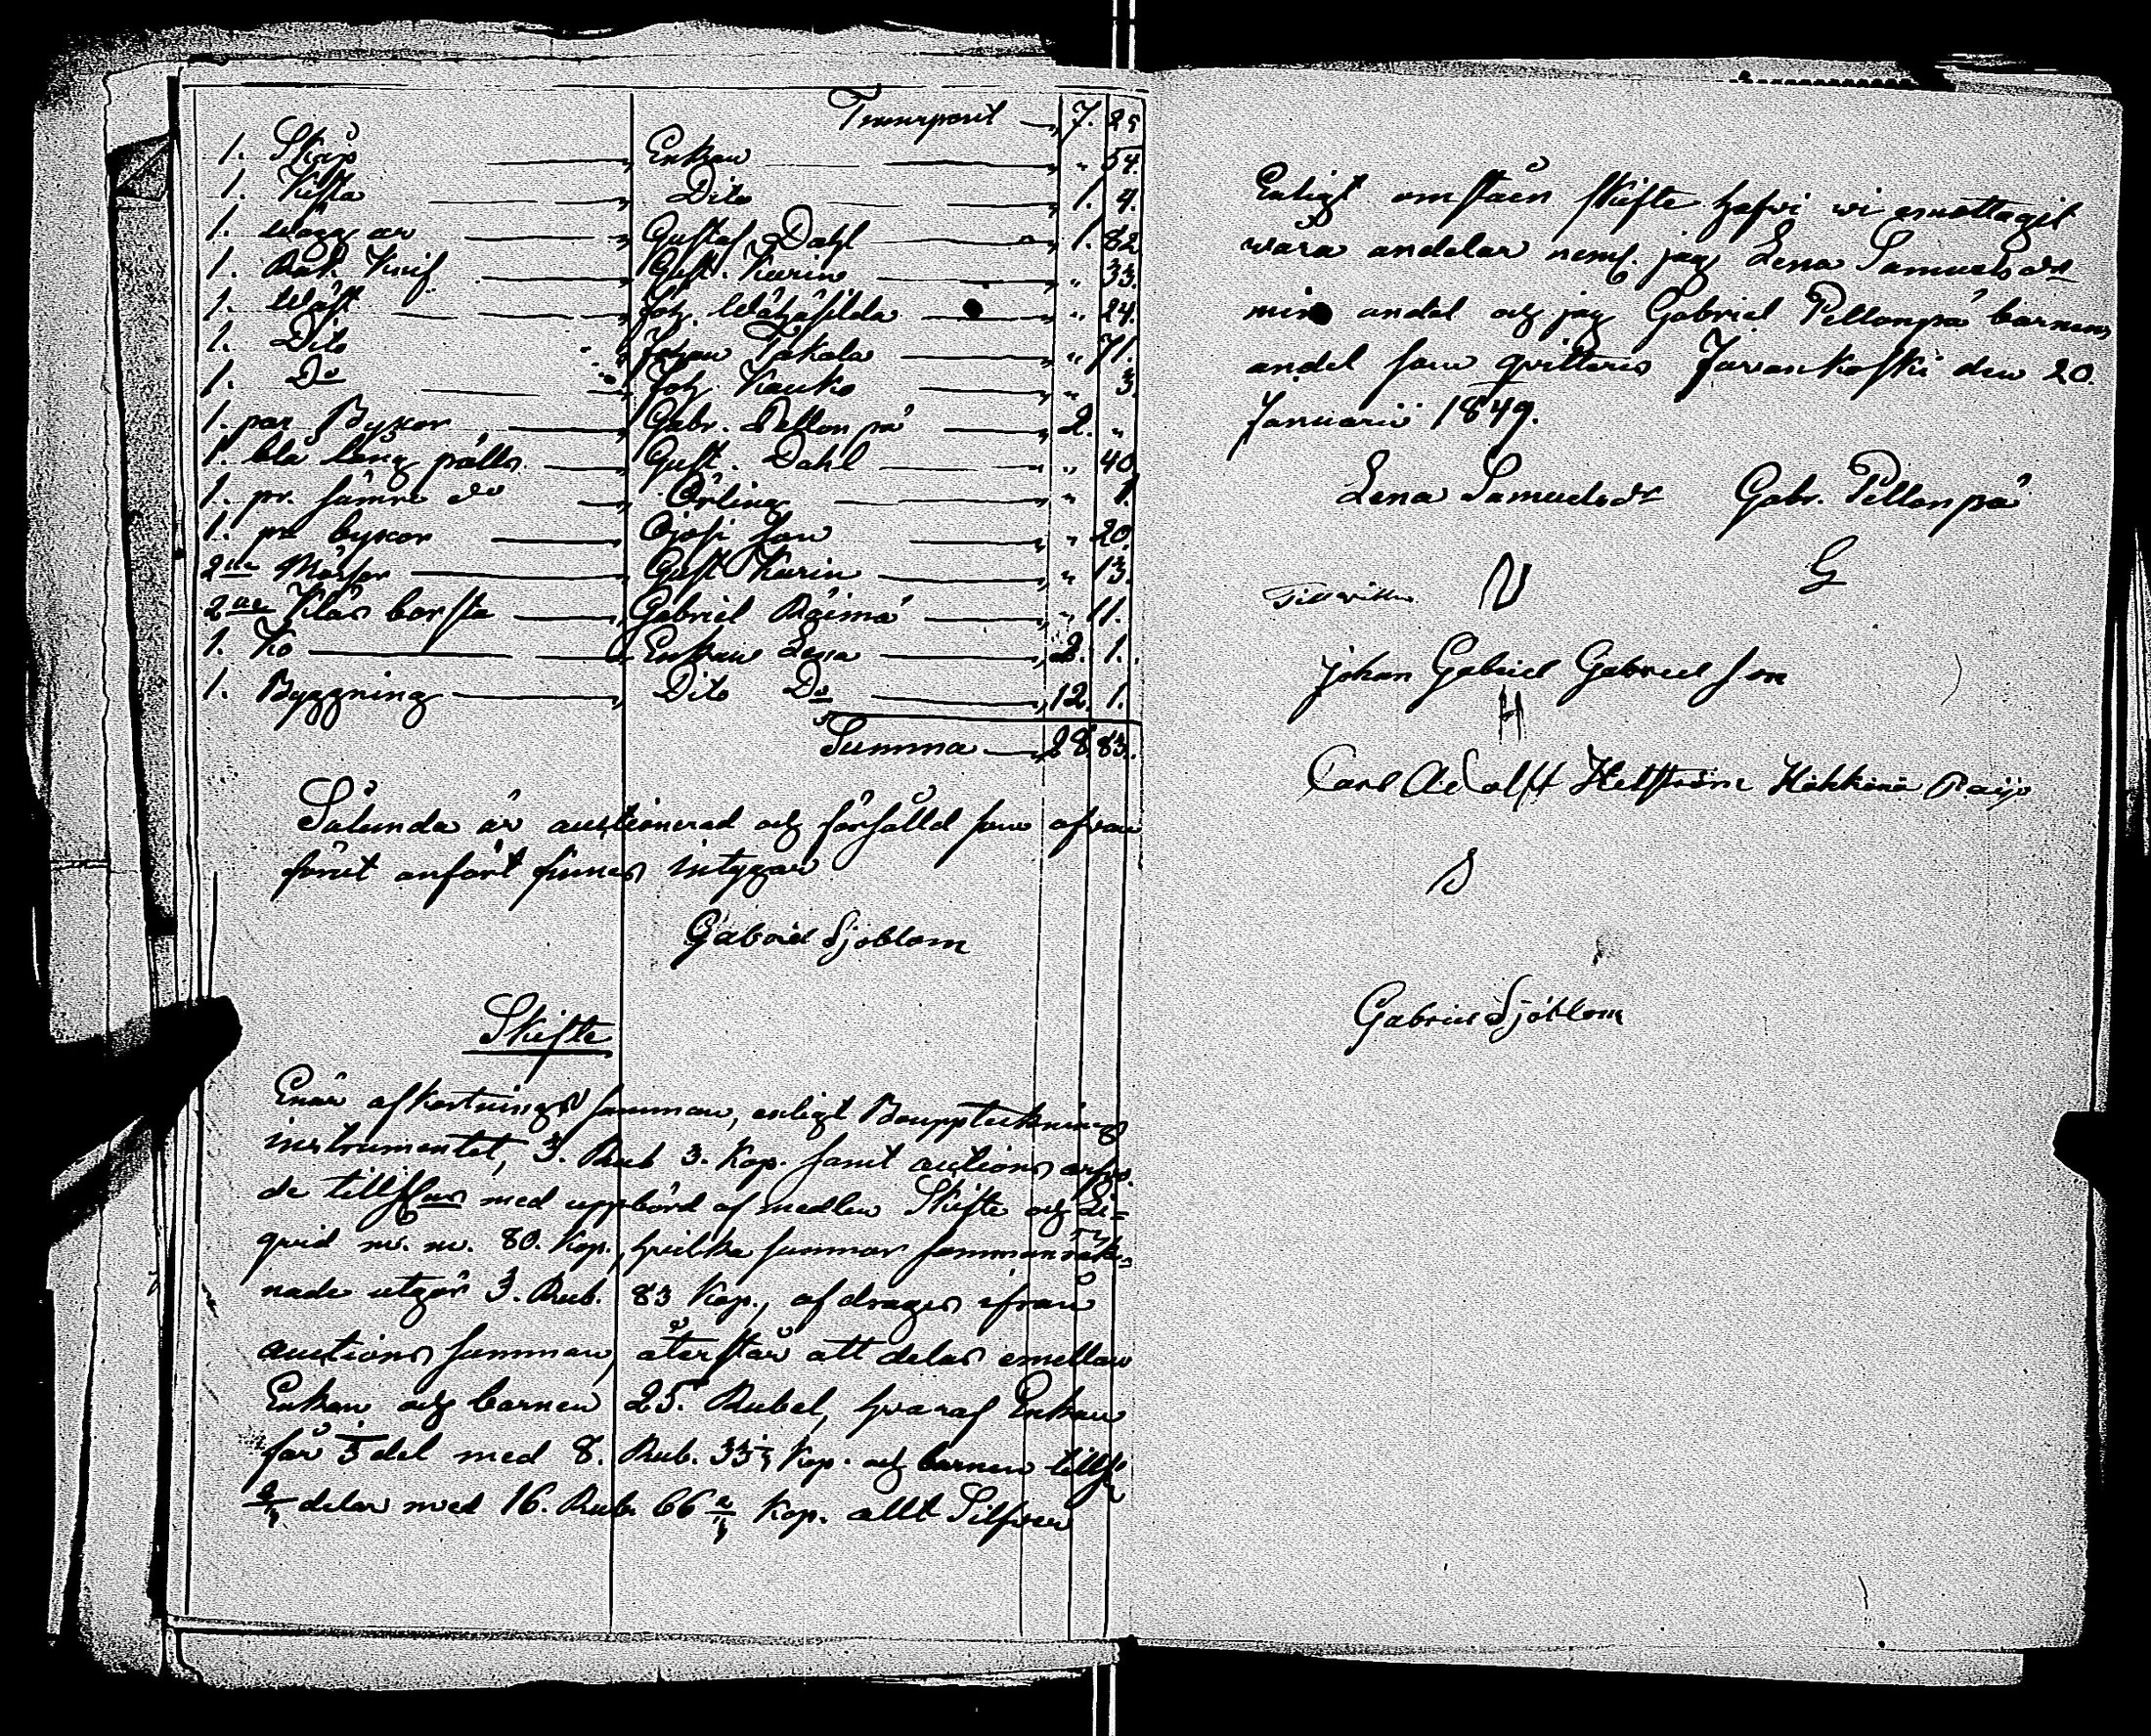 Transport — 7. 25
1. Skåp — Enkan — " 54.
1. Kista — Dito — 1. 4.
1. Wägg ur — Gustaf Dahl — 1. 82
1. Rak Knif — Gust. Karin — " 33.
1. Wäst — Joh. Wähäsilda — " 24.
1. Dito — Johan Takala — " 71.
1. Do — Joh. Kauko — " 3.
1. par Byxor — Gabr. Pellonpä — 2. "
1. blå lång pålls — Gust. Dahl — " 40
1. pr. sämre do — Örling — " 1.
1. pr byxor — Ojosi son — " 20.
2ne Mössor — Gust Karin — " 13.
2ne Kläd borsta — Gabriel Räimä — " 11.
1. Ko — Enkan Lena — 2. 1.
1. Byggning — Dito Do — 12. 1.
Summa — 28 83.
Sålunda är auctionerad och försåld som ofvan
förut anfört finnes intygar
Gabriel Sjoblom
Skifte
Enär afkortnings summan, enligt Bouppteknings
instrumentet, 3. Rub 3. Kop. samt auctions arfvo.
de med uppbörd af medlen Skifte och Li=
qvid m. m. 80. Kop., hvilka summor sammanräk=
nade utgör 3. Rub. 83 Kop., af drages ifrån
auctions summan, återstår att delas emellan
Enkan och barnen 25. Rubel, hvaraf Enkan
får 1/3 del med 8. Rub. 33 1/3 Kop. och barnen
2/3 delar med 16. Rub. 66 2/3 Kop. allt Silfver
Enligt omstäen skifte hafvi wi emottagit
wåra andelar neml. jag Lena Samuelsdr
min andel och jag Gabriel Pellonpä barnens
andel som qvitteris Jurvankoski den 20.
Januarii 1849.
Lena Samuelsdr Gabr. Pellonpä
G
Till vittne
Johan Gabriel Gabriel son
H
Carl Adolft Helström Häkkinä
Gabriel Sjöblom